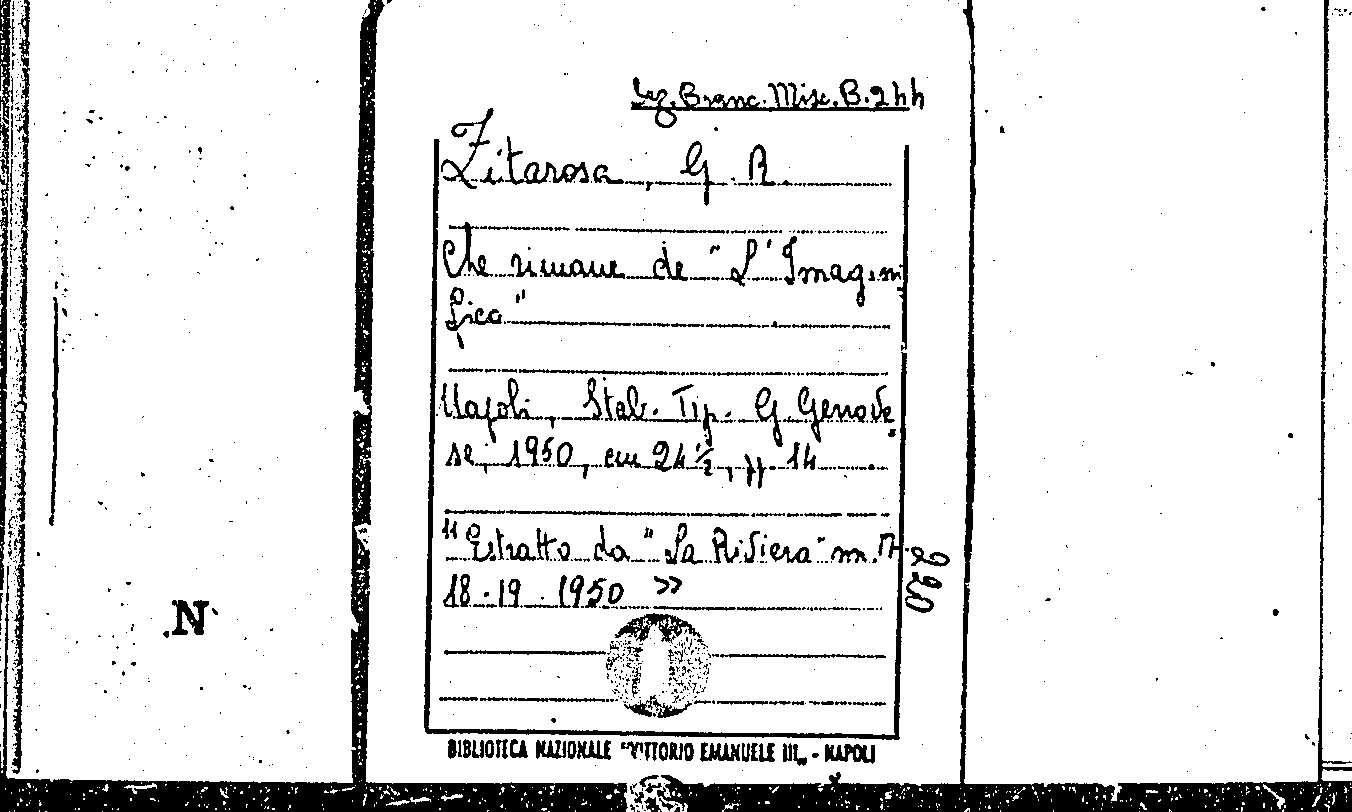 Sez. Branc. Misc. B. 244
Zitarosa, G. R.
Che rimane de "L'Imagini
fica"
Napoli, Stab. Tip. G. Genove
se, 1950, cm 24 ½, pp. 14
"Estratto da "La Riviera" nn. 17
18-19. 1950 »
220
N
BIBLIOTECA NAZIONALE "VITTORIO EMANUELE III„ - NAPOLI